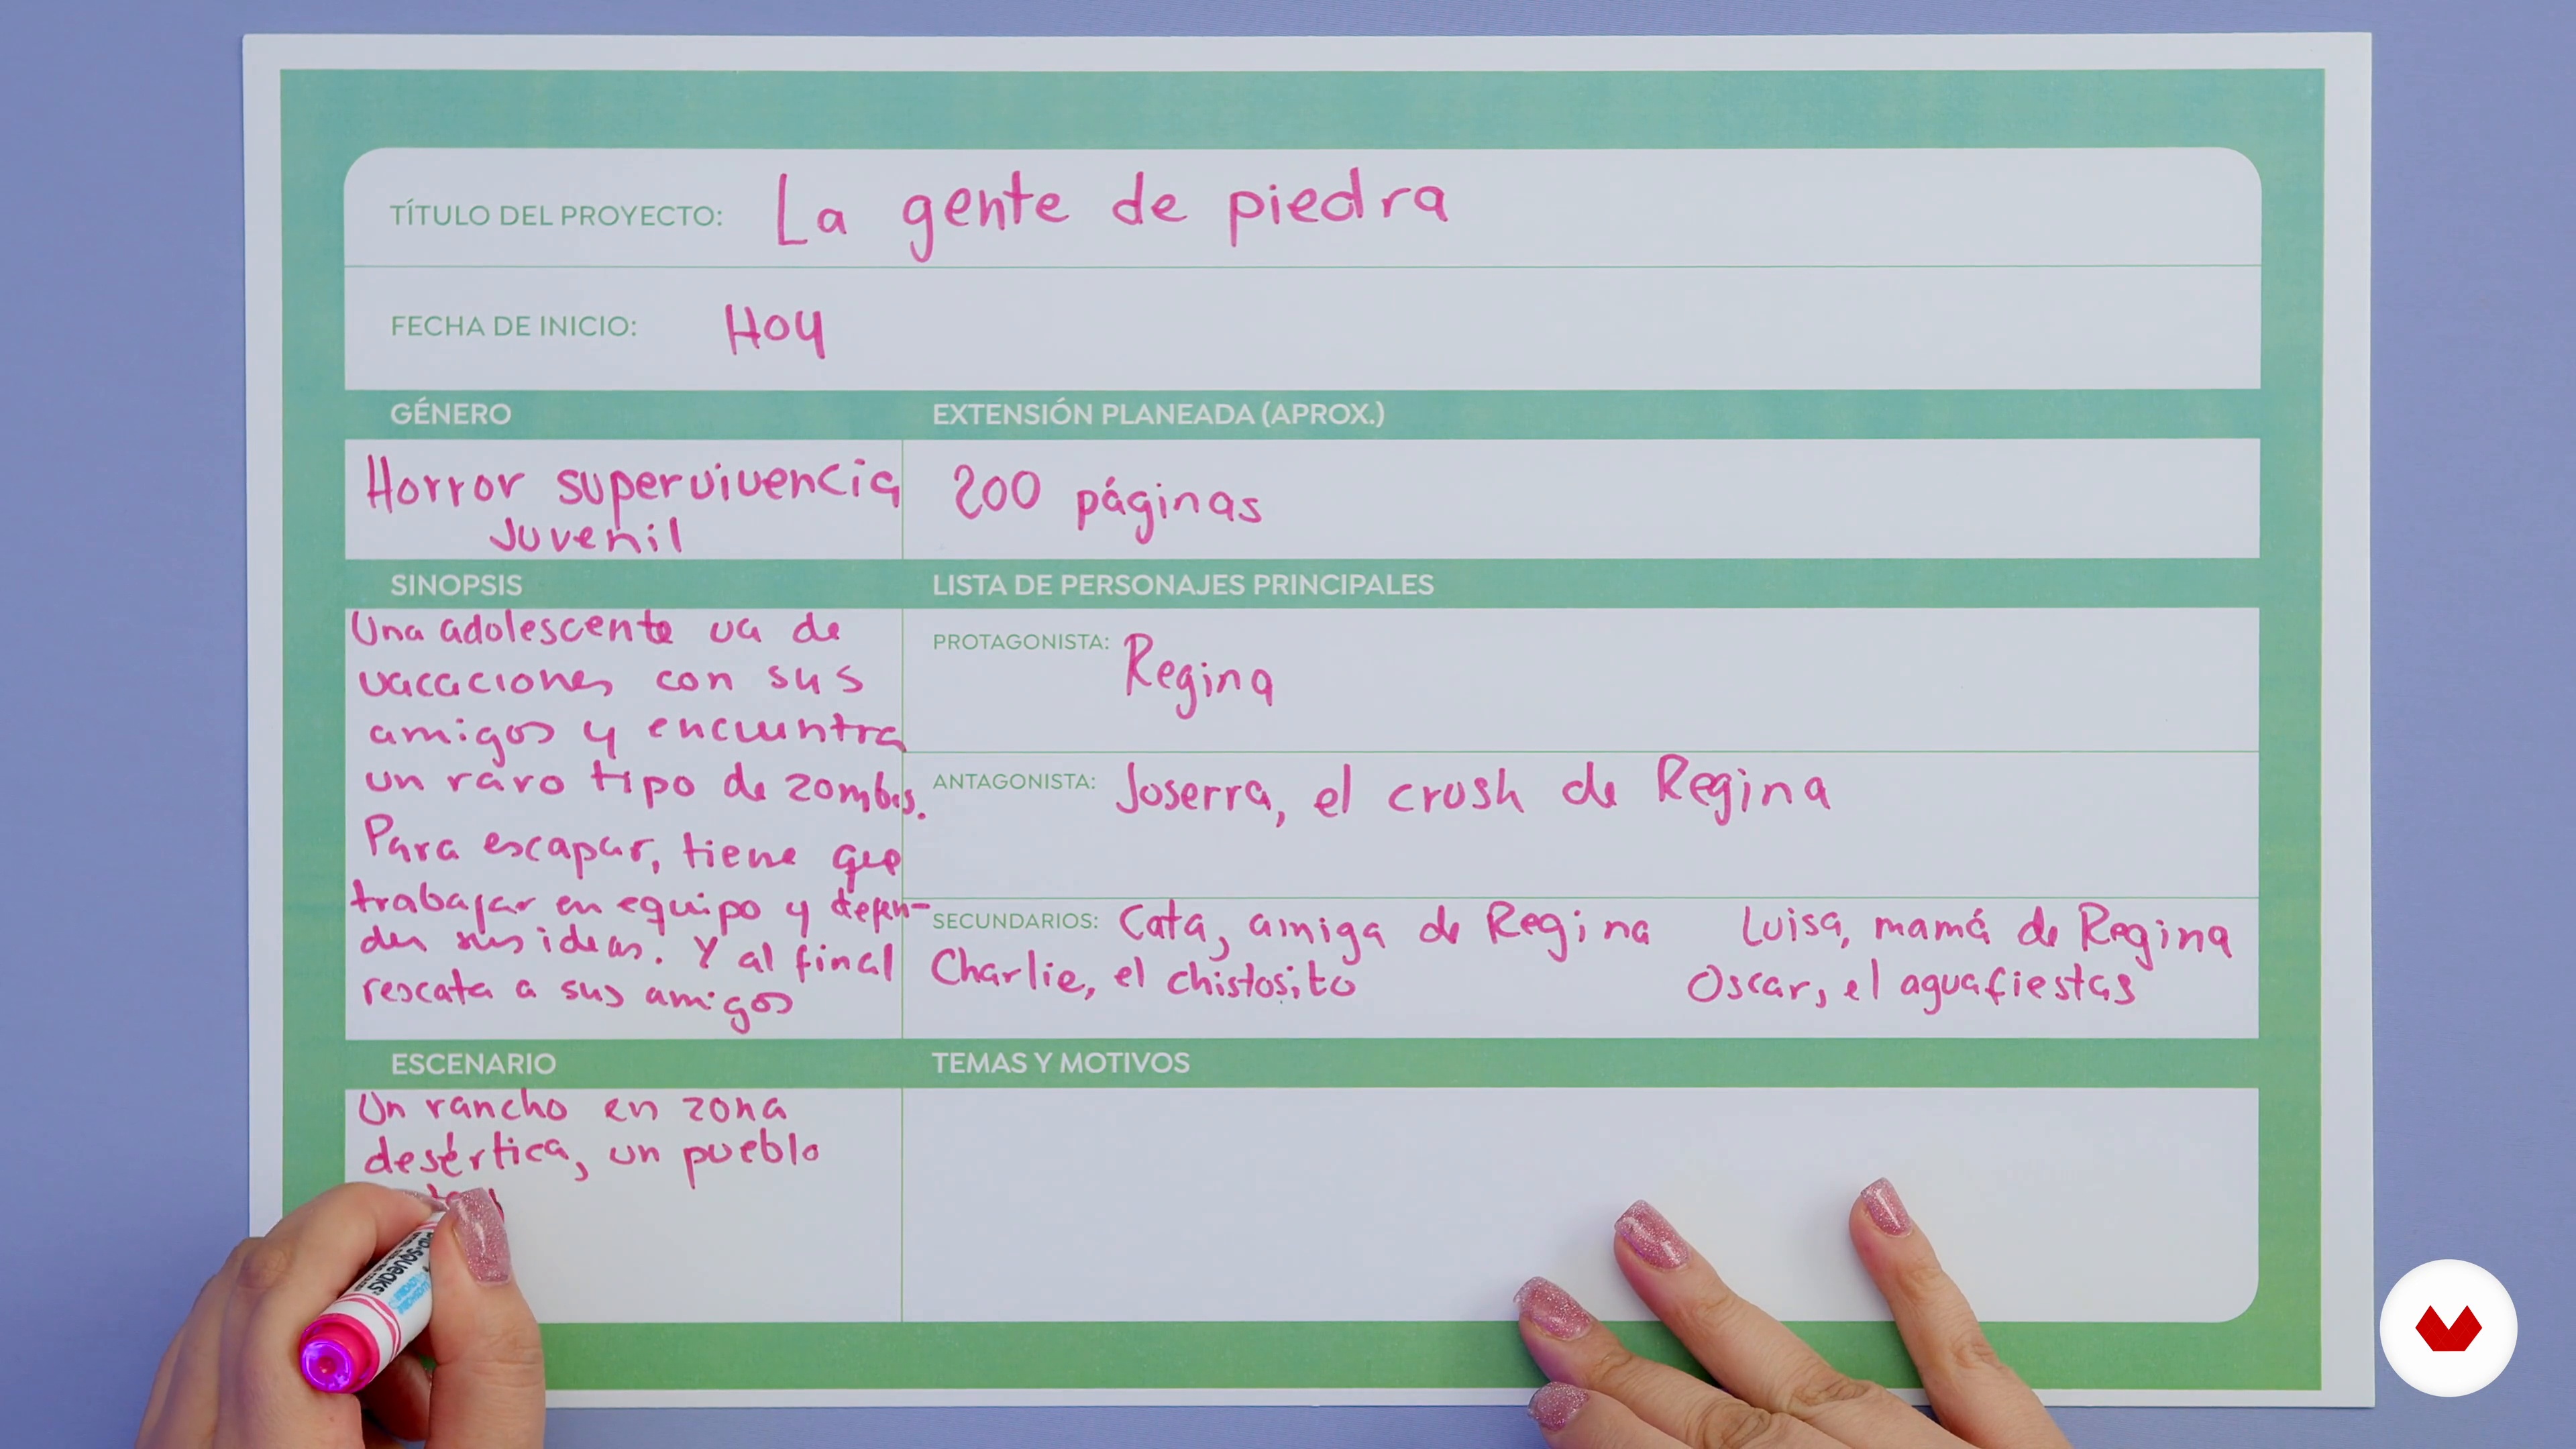 TÍTULO DEL PROYECTO: La gente de piedra
FECHA DE INICIO: Hoy
GÉNERO
Horror supervivencia
Juvenil
EXTENSIÓN PLANEADA (APROX.)
200 páginas
SINOPSIS
Una adolescente va de
vacaciones con sus
amigos y encuentra
un raro tipo de zombis.
Para escapar, tiene que
trabajar en equipo y defen-
der sus ideas. Y al final
rescata a sus amigos
LISTA DE PERSONAJES PRINCIPALES
PROTAGONISTA: Regina
ANTAGONISTA: Joserra, el crush de Regina
SECUNDARIOS: Cata, amiga de Regina Luisa, mamá de Regina
Charlie, el chistosito Oscar, el aguafiestas
ESCENARIO
Un rancho en zona
desértica, un pueblo
TEMAS Y MOTIVOS